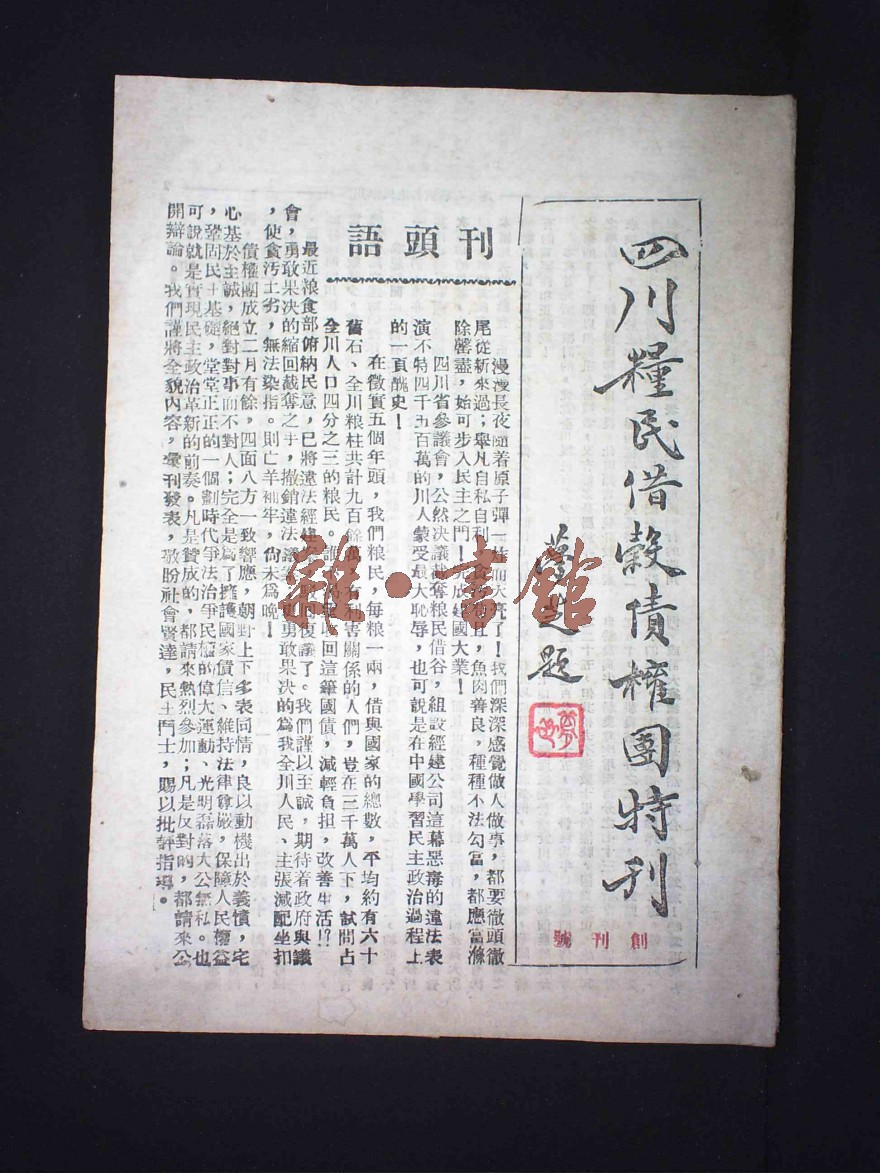 四川糧民借穀債權團特刊
題
創刊號
刊頭語
漫漫長夜隨着原子彈一炸而天亮了！我們深深感覺做人做事，都要徹頭徹
尾從新來過；舉凡自私自利，貪污苟且，魚肉善良，種種不法勾當，都應當滌
除罄盡，始可步入民主之門！完成建國大業！
四川省參議會，公然決議截奪粮民借谷，組設經建公司這幕惡毒的違法表
演不特四千五百萬的川人蒙受最大恥辱，也可說是在中國學習民主政治過程上
的一頁醜史！
在徵實五個年頭，我們粮民，每粮一兩，借與國家的總數，平均約有六十
舊石、全川粮柱共計九百餘萬，有利害關係的人們，豈在三千萬人下，試問占
全川人口四分之三的粮民。誰不 收回這筆國債，減輕負担，改善生活！？
最近粮食部俯納民意，已將違法經建 復議了。我們謹以至誠，期待着政府與議
會，勇敢果决的縮回截奪之手，撤銷違法議 更勇敢果决的為我全川人民、主張減配坐扣
，使貪污土劣，無法染指。則亡羊補牢，尙未爲晚！
債權團成立二月有餘，四面八方一致響應，朝野上下多表同情，良以動機出於義憤，宅
心基於主誠，絕對對事而不對人；完全是爲了擁護國家債信、維持法律尊嚴，保障人民權益
，鞏固民主基礎，堂堂正正的一個劃時代爭法治爭民權的偉大運動、光明磊落大公無私。也
可說就是實現民主政治革新的前奏。凡是贊成的，都請來熱烈參加；凡是反對的，都請來公
開辯論。我們謹將全貌內容，彙刊發表，敬盼社會賢達，民主鬥士，賜以批評指導。
雜·書館